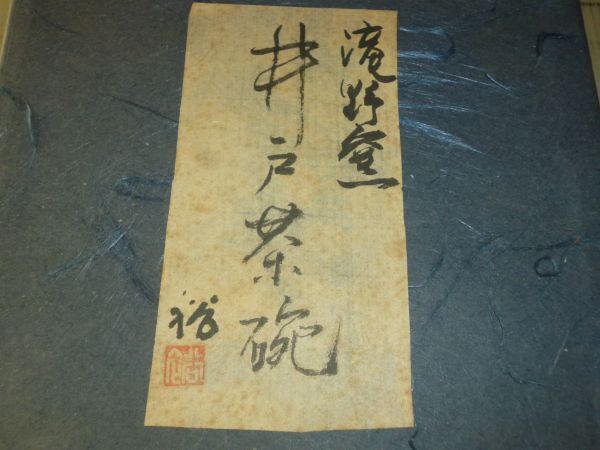 滝野窯
井戸茶碗
裕